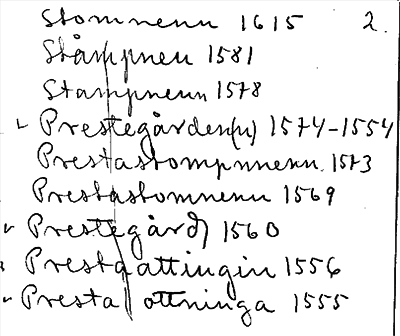 Stomnenn 1615 2.
Ståmpneu 1581
Stampnenn 1578
Prestegården(n) 1574-1554
Prestastompnnenn. 1573
Prestastomnenn 1569
Prestegård 1560
Presta attingin 1556
Presta ottninga 1555